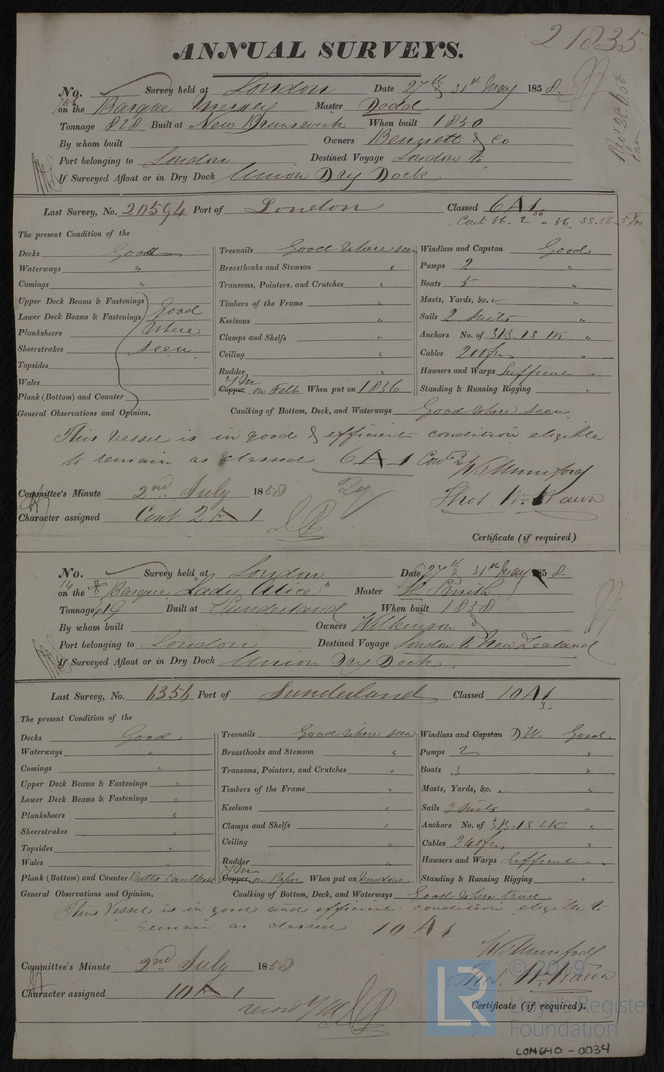 21835
ANNUAL SURVEYS.
No. Survey held at London Date 27th & 31st May 1858
on the Barque Mersey Master Dodd
Tonnage 828 Built at New Brunswick When built 1850
By whom built Owners Bennett & Co
Port belonging to London Destined Voyage London to
If Surveyed Afloat or in Dry Dock Union Dry Dock
Last Survey, No. 20594 Port of London Classed 6 A 1
The present Condition of the
Decks Good Treenails Good where seen Windlass and Capstan Good
Waterways " Breasthooks and Stemson " Pumps 2 "
Comings " Transoms, Pointers, and Crutches " Boats 5 "
Upper Deck Beams & Fastenings Good Timbers of the Frame " Masts, Yards, &c. "
Lower Deck Beams & Fastenings where Keelsons " Sails 2 Suits "
Planksheers seen Clamps and Shelfs " Anchors No. of 3B. 1S 1K "
Sheerstrakes Ceiling " Cables 200 fms "
Topsides Rudder " Hawsers and Warps Sufficient "
Wales Copper YM on Felt When put on 1856 Standing & Running Rigging "
Plank (Bottom) and Counter
General Observations and Opinion, Caulking of Bottom, Deck, and Waterways Good where seen
This Vessel is in good & efficient condition eligible
to remain as classed 6 A 1 Cont 2
W. Mumford
Thos W. Wawn
Committee's Minute 2nd July 1858
Character assigned Cont 2 A 1
Certificate (if required)
No. Survey held at London Date 27th & 31st May 1858
on the Barque "Lady Alice" Master Smith
Tonnage 419 Built at Sunderland When built 1858
By whom built Owners Wilkinson
Port belonging to London Destined Voyage London to New Zealand
If Surveyed Afloat or in Dry Dock Union Dry Dock
Last Survey, No. Port of Sunderland Classed 10 A 1
The present Condition of the
Decks Good Treenails Good where seen Windlass and Capstan Good
Waterways " Breasthooks and Stemson " Pumps 2 "
Comings " Transoms, Pointers, and Crutches " Boats 3 "
Upper Deck Beams & Fastenings " Timbers of the Frame " Masts, Yards, &c. "
Lower Deck Beams & Fastenings " Keelsons " Sails 2 Suits "
Planksheers " Clamps and Shelfs " Anchors No. of 3B. 1S 2K "
Sheerstrakes " Ceiling " Cables 240 fms "
Topsides " Rudder " Hawsers and Warps Sufficient "
Wales " Copper YM on Paper When put on Standing & Running Rigging "
Plank (Bottom) and Counter Butts Caulked
General Observations and Opinion, Caulking of Bottom, Deck, and Waterways Good where tried
This Vessel is in good and efficient condition eligible to
remain as classed 10 A 1
W. Mumford
Thos. W. Wawn
Committee's Minute 2nd July 1858
Character assigned 10 A 1
Certificate (if required).
LR © 2019 Lloyd's Register Foundation
LON640-0034